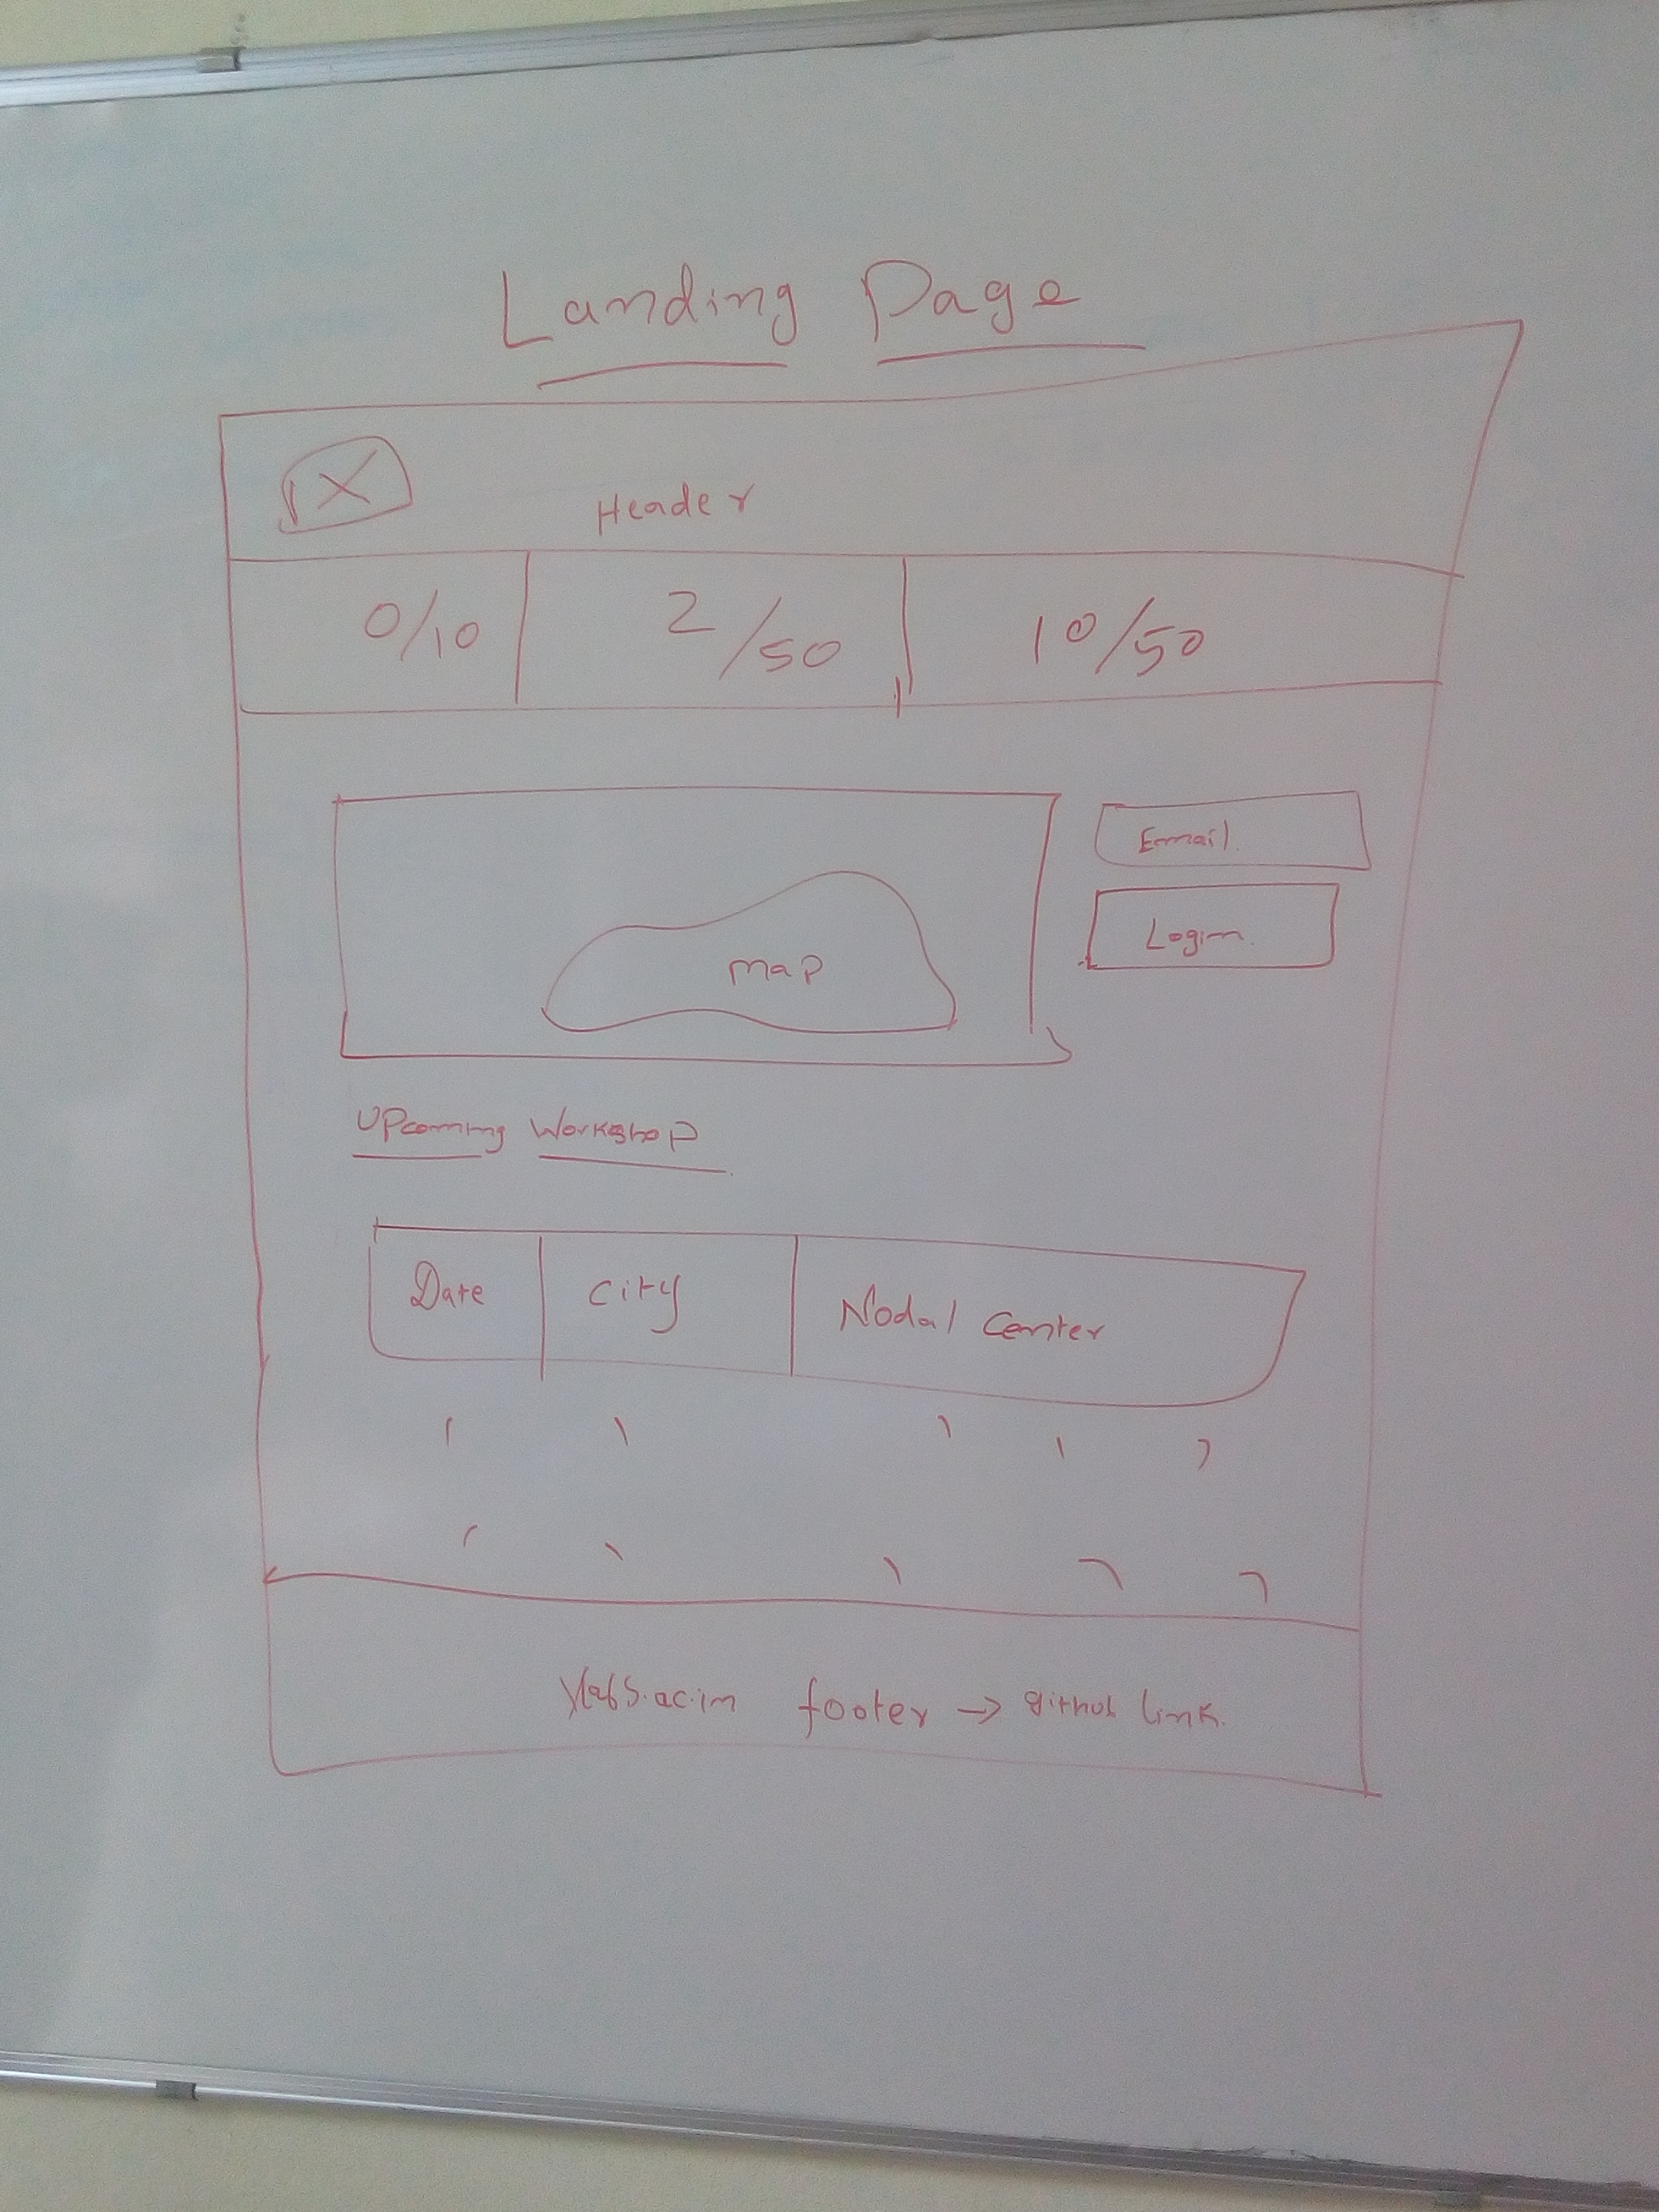 Landing Page
X
Header
0/10 2/50 10/50
Email.
Login.
map
Upcoming Workshop
Date City Nodal Center
vlabs.ac.in footer → github link.